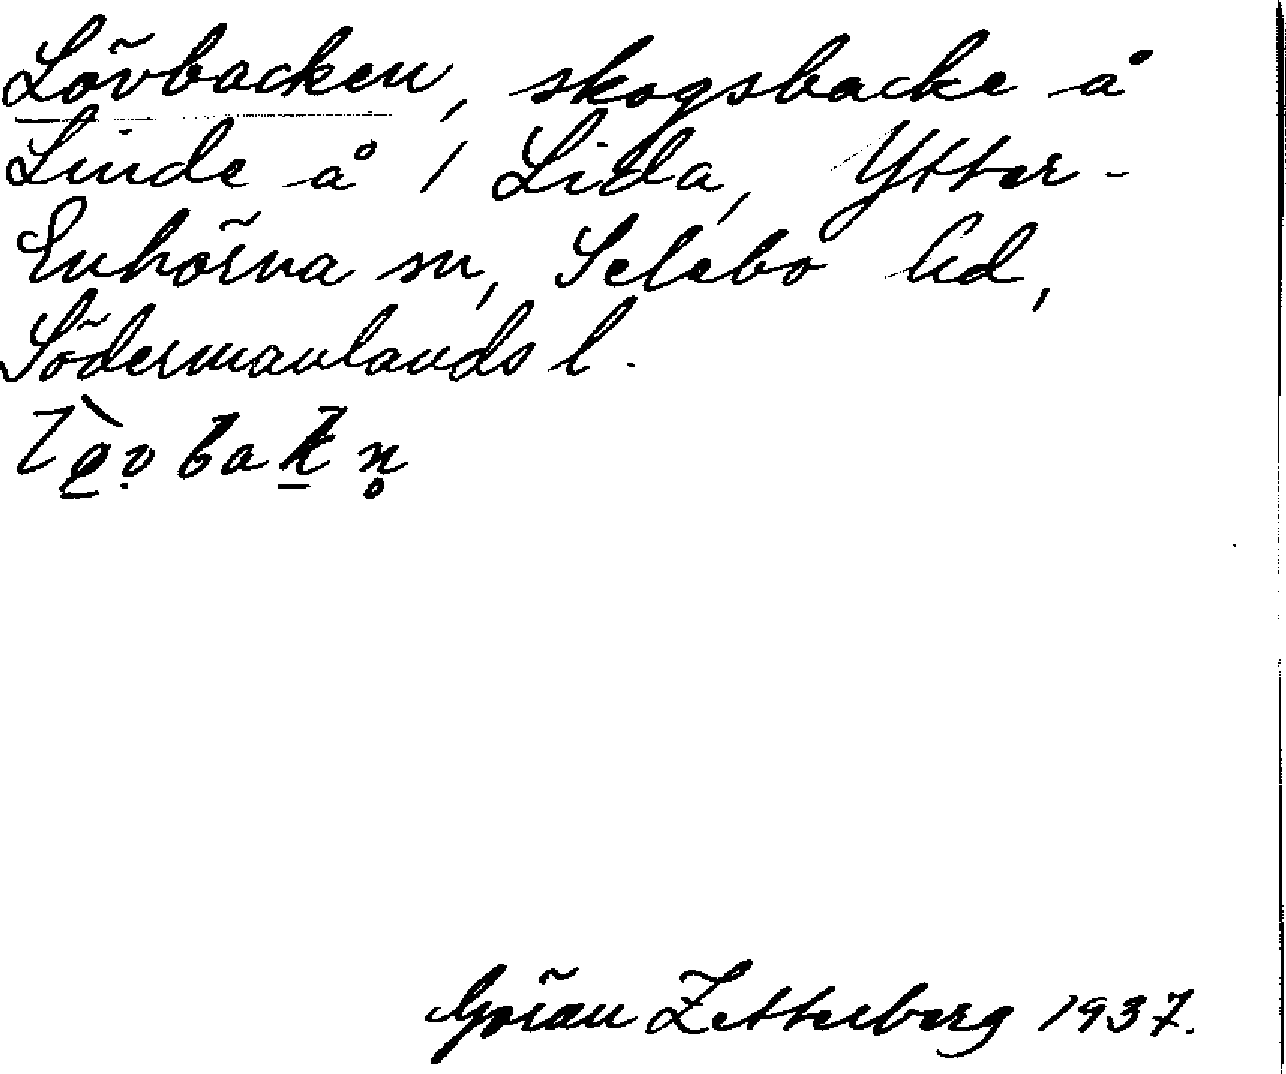 Lövbacken, skogsbacke å
Linde å / Lida, Ytter-
Enhörna sn, Selebo hd,
Södermanlands l.
Göran Zetterberg 1937.